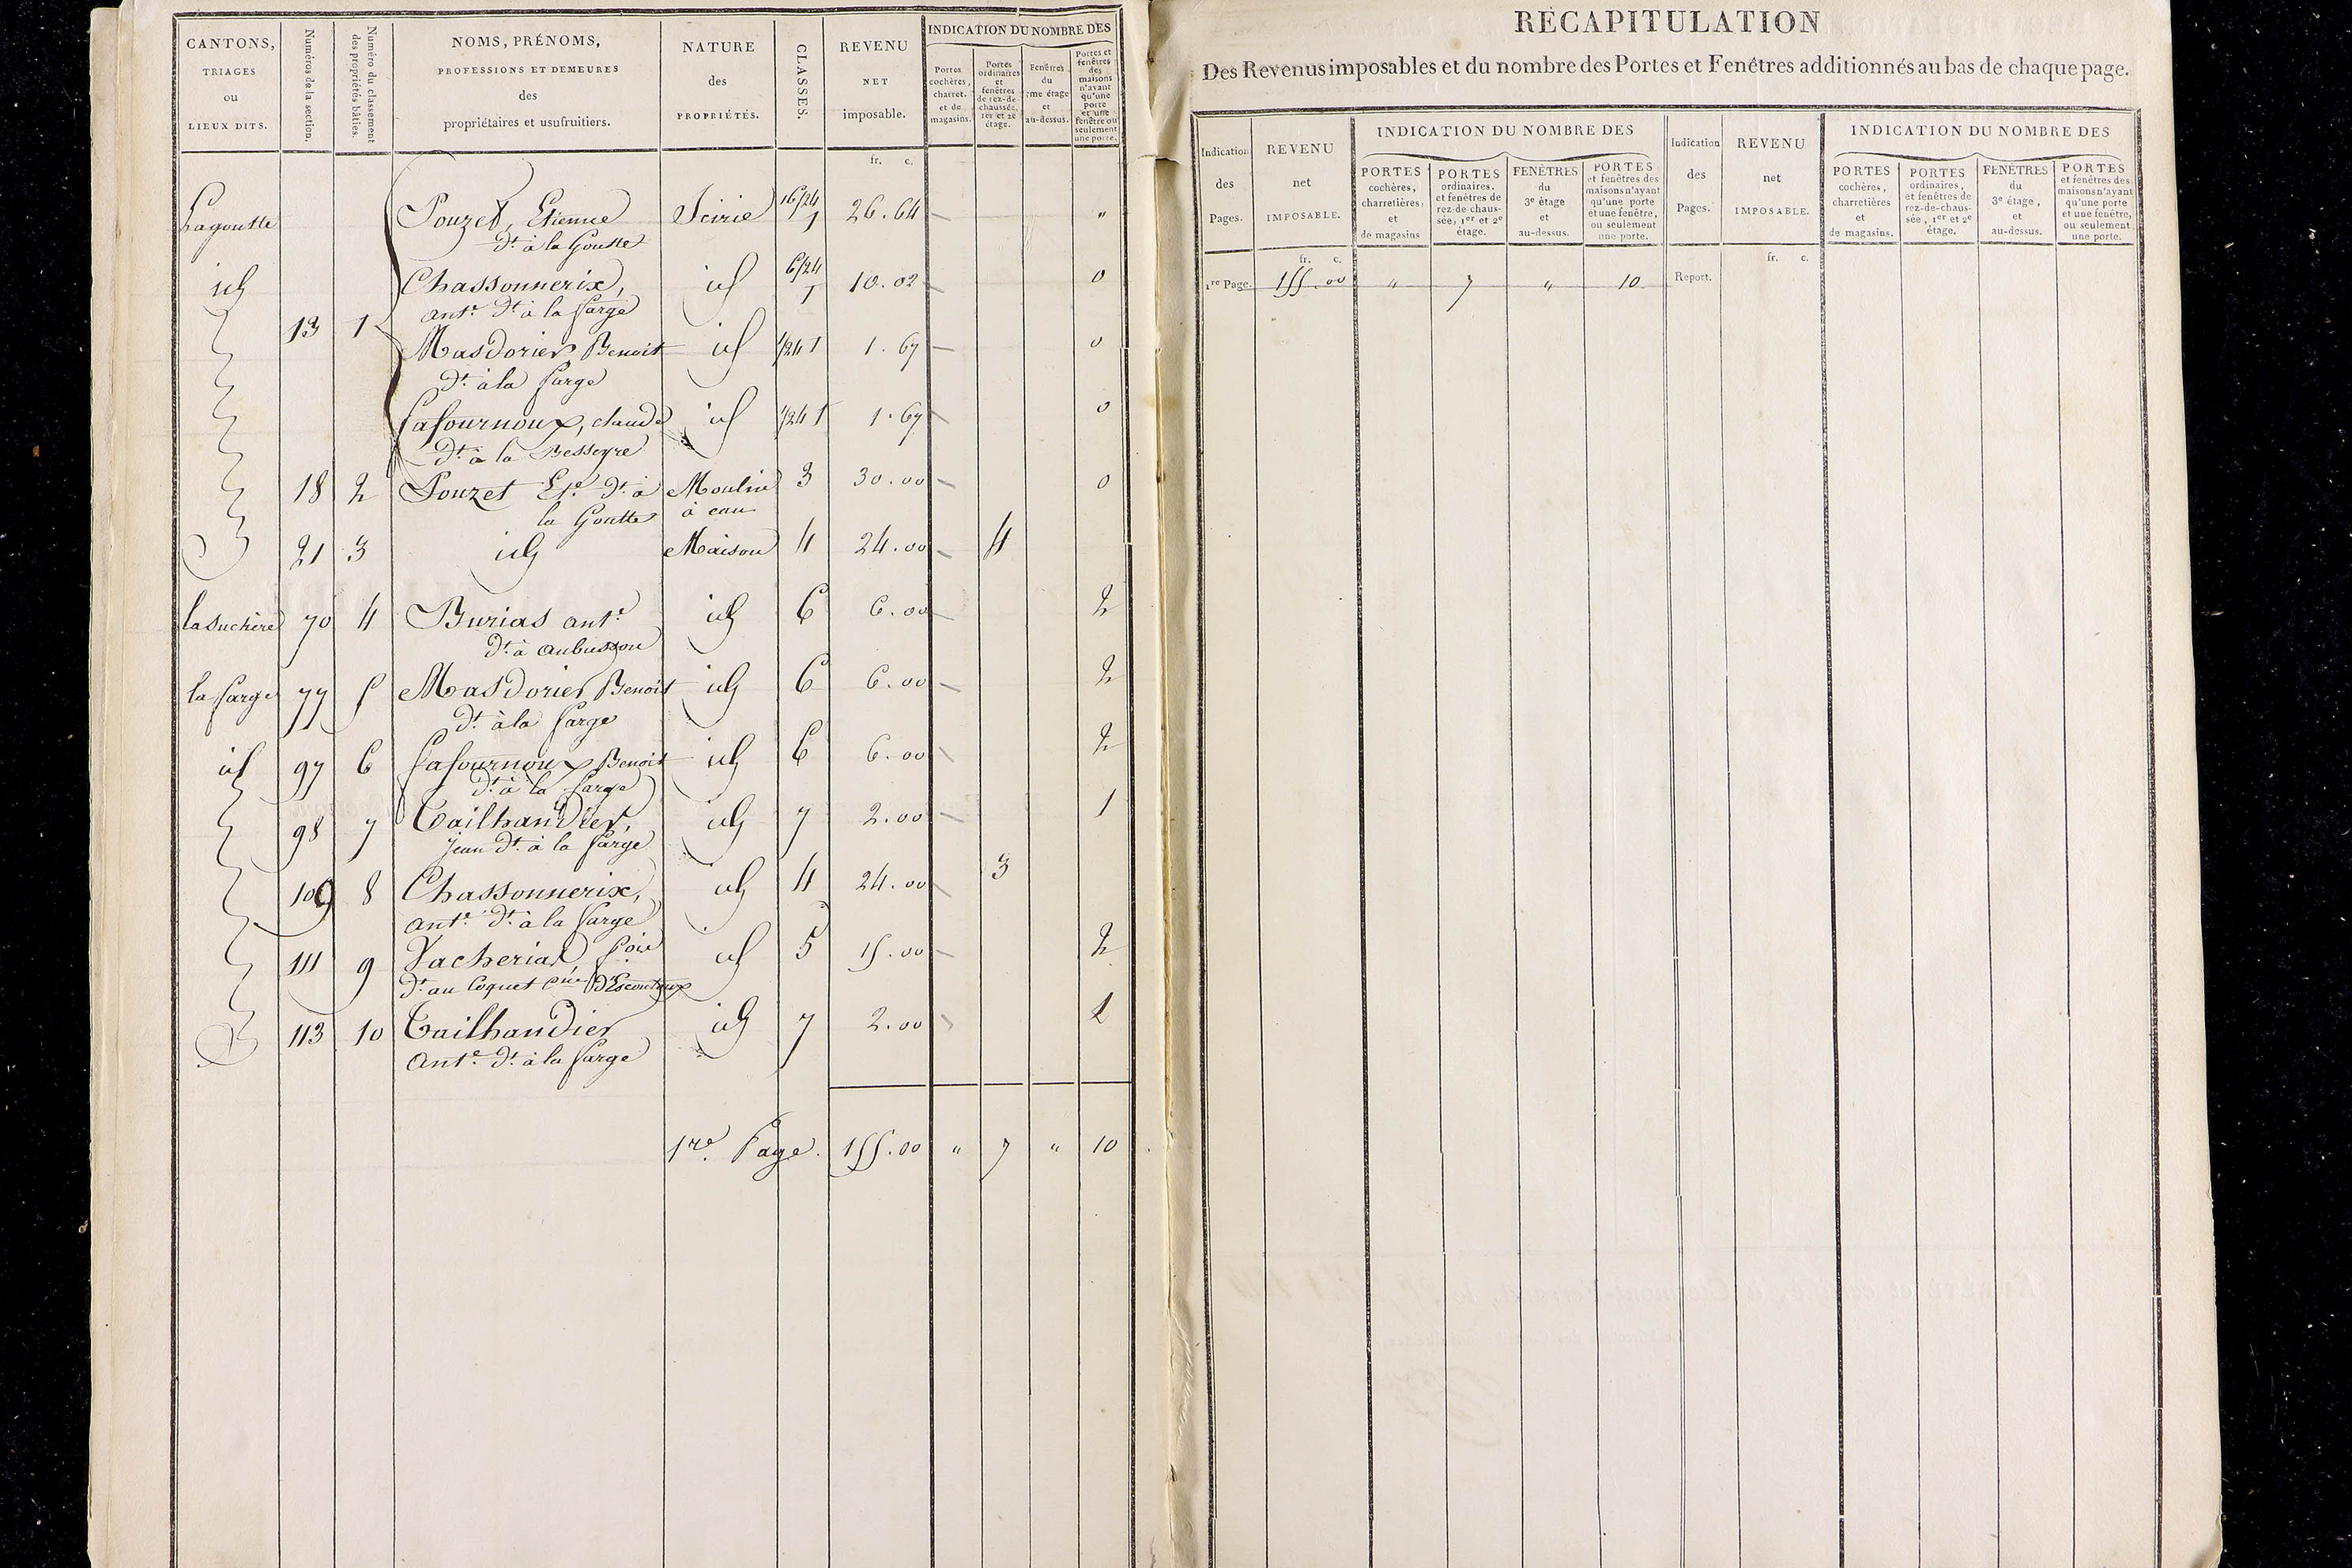 CANTONS,
TRIAGES
ou
LIEUX DITS.
Numéros de la section.
Numéro du classement
des propriétés bâties.
NOMS, PRÉNOMS,
PROFESSIONS ET DEMEURES
des
propriétaires et usufruitiers.
NATURE
des
PROPRIÉTÉS.
CLASSES.
REVENU
NET
imposable.
INDICATION DU NOMBRE DES
Portes
cochères,
charret.
et de
magasins.
Portes
ordinaires
et
fenêtres
de rez-de-
chaussée,
1er et 2e
étage.
Fenêtres
du
me étage
et
au-dessus.
Portes et
fenêtres
des
maisons
n'ayant
qu'une
porte
et une
fenêtre ou
seulement
une porte.
fr. c.
Lagoutte Pouzet, Etienne Scirie 16/24 1 26.64 "
dt à la Goutte
id Chassonnerix, id 6/24 1 10.02 0
antе dt à la farge
13 1
Masdorier Benoit id 1/24 1 1.67 0
dt à la farge
Lafournoux, claude id 1/24 1 1.67 0
dt à la Besseyre
18 2 Pouzet Ete dt à Moulin 3 30.00 0
la Goutte à eau
21 3 id Maison 4 24.00 4
la Suchere 70 4 Burias ante id 6 6.00 2
dt à aubusson
la farge 77 5 Masdorier Benoit id 6 6.00 2
dt à la farge
id 97 6 Lafournoux Benoit id 6 6.00 2
dt à la farge
98 7 Tailhandier, id 7 2.00 1
jean dt à la farge
109 8 Chassonnerix, id 4 24.00 3
ante dt à la farge
111 9 Vacheriat id 5 15.00 2
dt au Coquet Cne d'Escoutoux
113 10 Tailhandier id 7 2.00 1
Ante dt à la farge
1re Page. 155.00 " 7 " 10
RÉCAPITULATION
Des Revenus imposables et du nombre des Portes et Fenêtres additionnés au bas de chaque page.
Indication
des
Pages.
REVENU
net
IMPOSABLE.
INDICATION DU NOMBRE DES
PORTES
cochères,
charretières,
et
de magasins
PORTES
ordinaires,
et fenêtres de
rez-de-chaus-
sée, 1er et 2e
étage.
FENÊTRES
du
3e étage
et
au-dessus.
PORTES
et fenêtres des
maisons n'ayant
qu'une porte
et une fenêtre,
ou seulement
une porte.
Indication
des
Pages.
REVENU
net
IMPOSABLE.
INDICATION DU NOMBRE DES
PORTES
cochères,
charretières
et
de magasins.
PORTES
ordinaires,
et fenêtres de
rez-de-chaus-
sée, 1er et 2e
étage.
FENÊTRES
du
3e étage,
et
au-dessus.
PORTES
et fenêtres des
maisons n'ayant
qu'une porte
et une fenêtre,
ou seulement
une porte.
fr. c. fr. c.
1re Page. 155.00 " 7 " 10 Report.